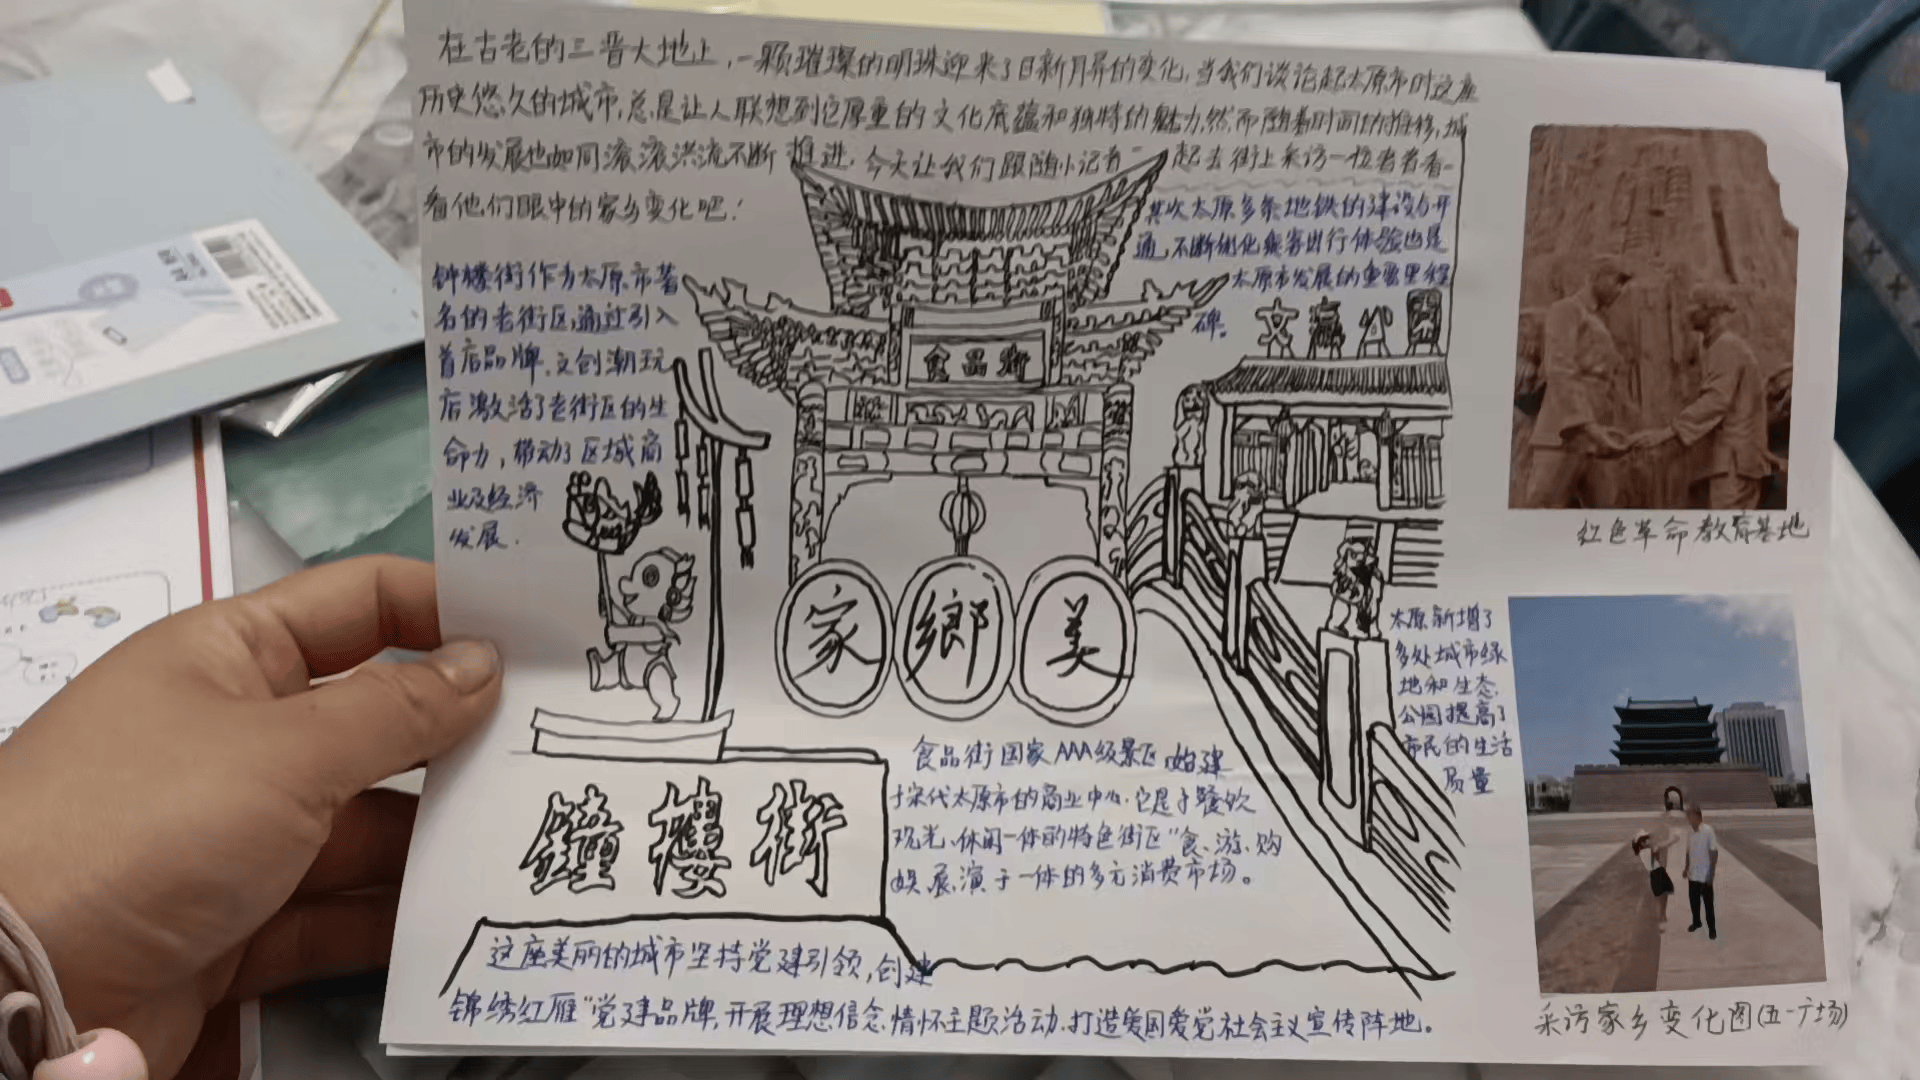 在古老的三晋大地上,一颗璀璨的明珠迎来了日新月异的变化,当我们谈论起太原市时这座
历史悠久的城市,总是让人联想到它厚重的文化底蕴和独特的魅力,然而随着时间的推移,城
市的发展也如同滚滚洪流不断推进,今天让我们跟随小记者一起去街上采访一位老者看一
看他们眼中的家乡变化吧!
钟楼街作为太原市著
名的老街区,通过引入
首店品牌、文创潮玩
店激活了老街区的生
命力,带动了区域商
业及经济
发展.
其次太原多条地铁的建设与开
通,不断优化乘客出行体验也是
太原市发展的重要里程
碑。
文瀛公园
食品街
家鄉美
红色革命教育基地
太原新增了
多处城市绿
地和生态
公园提高了
市民的生活
质量
食品街国家AAA级景区,始建
于宋代太原市的商业中心.它是于餐饮
观光、休闲一体的特色街区"食、游、购
娱、展、演于一体的多元消费市场。
鐘樓街
这座美丽的城市坚持党建引领,创建
锦绣红雁"党建品牌,开展理想信念、情怀主题活动,打造爱国爱党社会主义宣传阵地。
采访家乡变化图(五一广场)